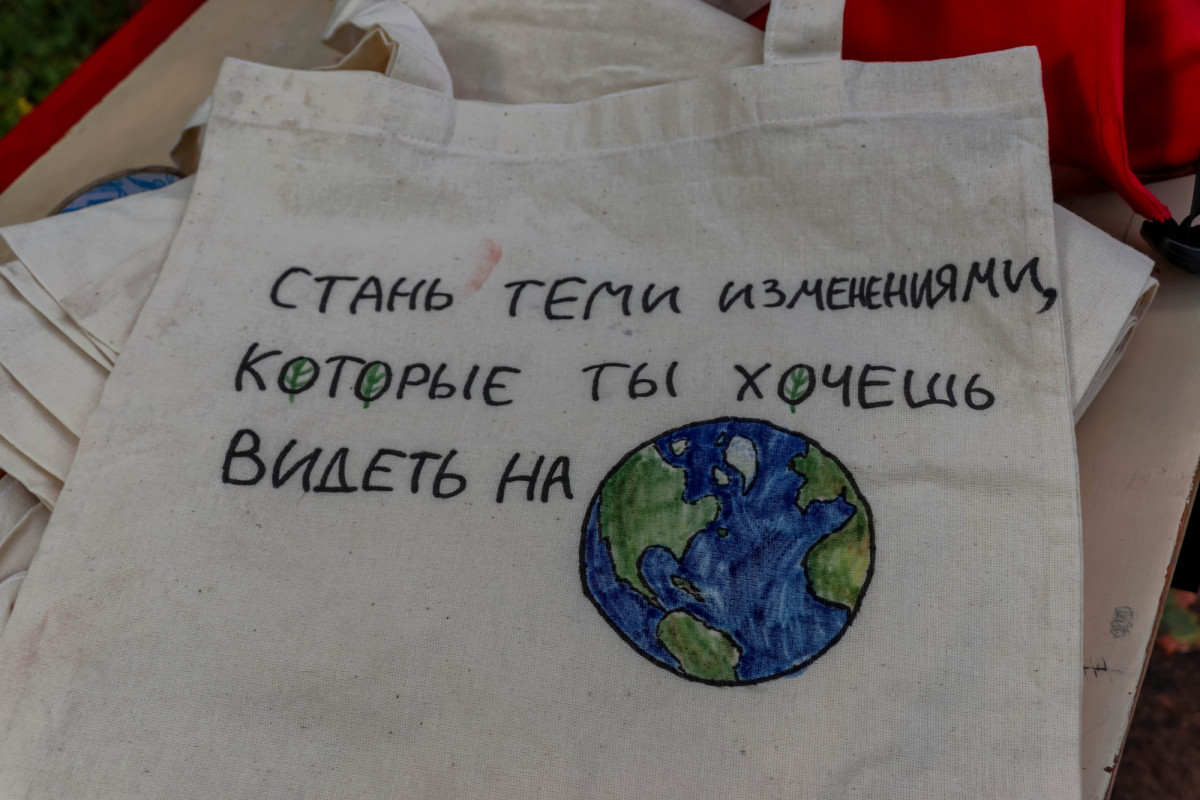 СТАНЬ ТЕМИ ИЗМЕНЕНИЯМИ,
КОТОРЫЕ ТЫ ХОЧЕШЬ
ВИДЕТЬ НА